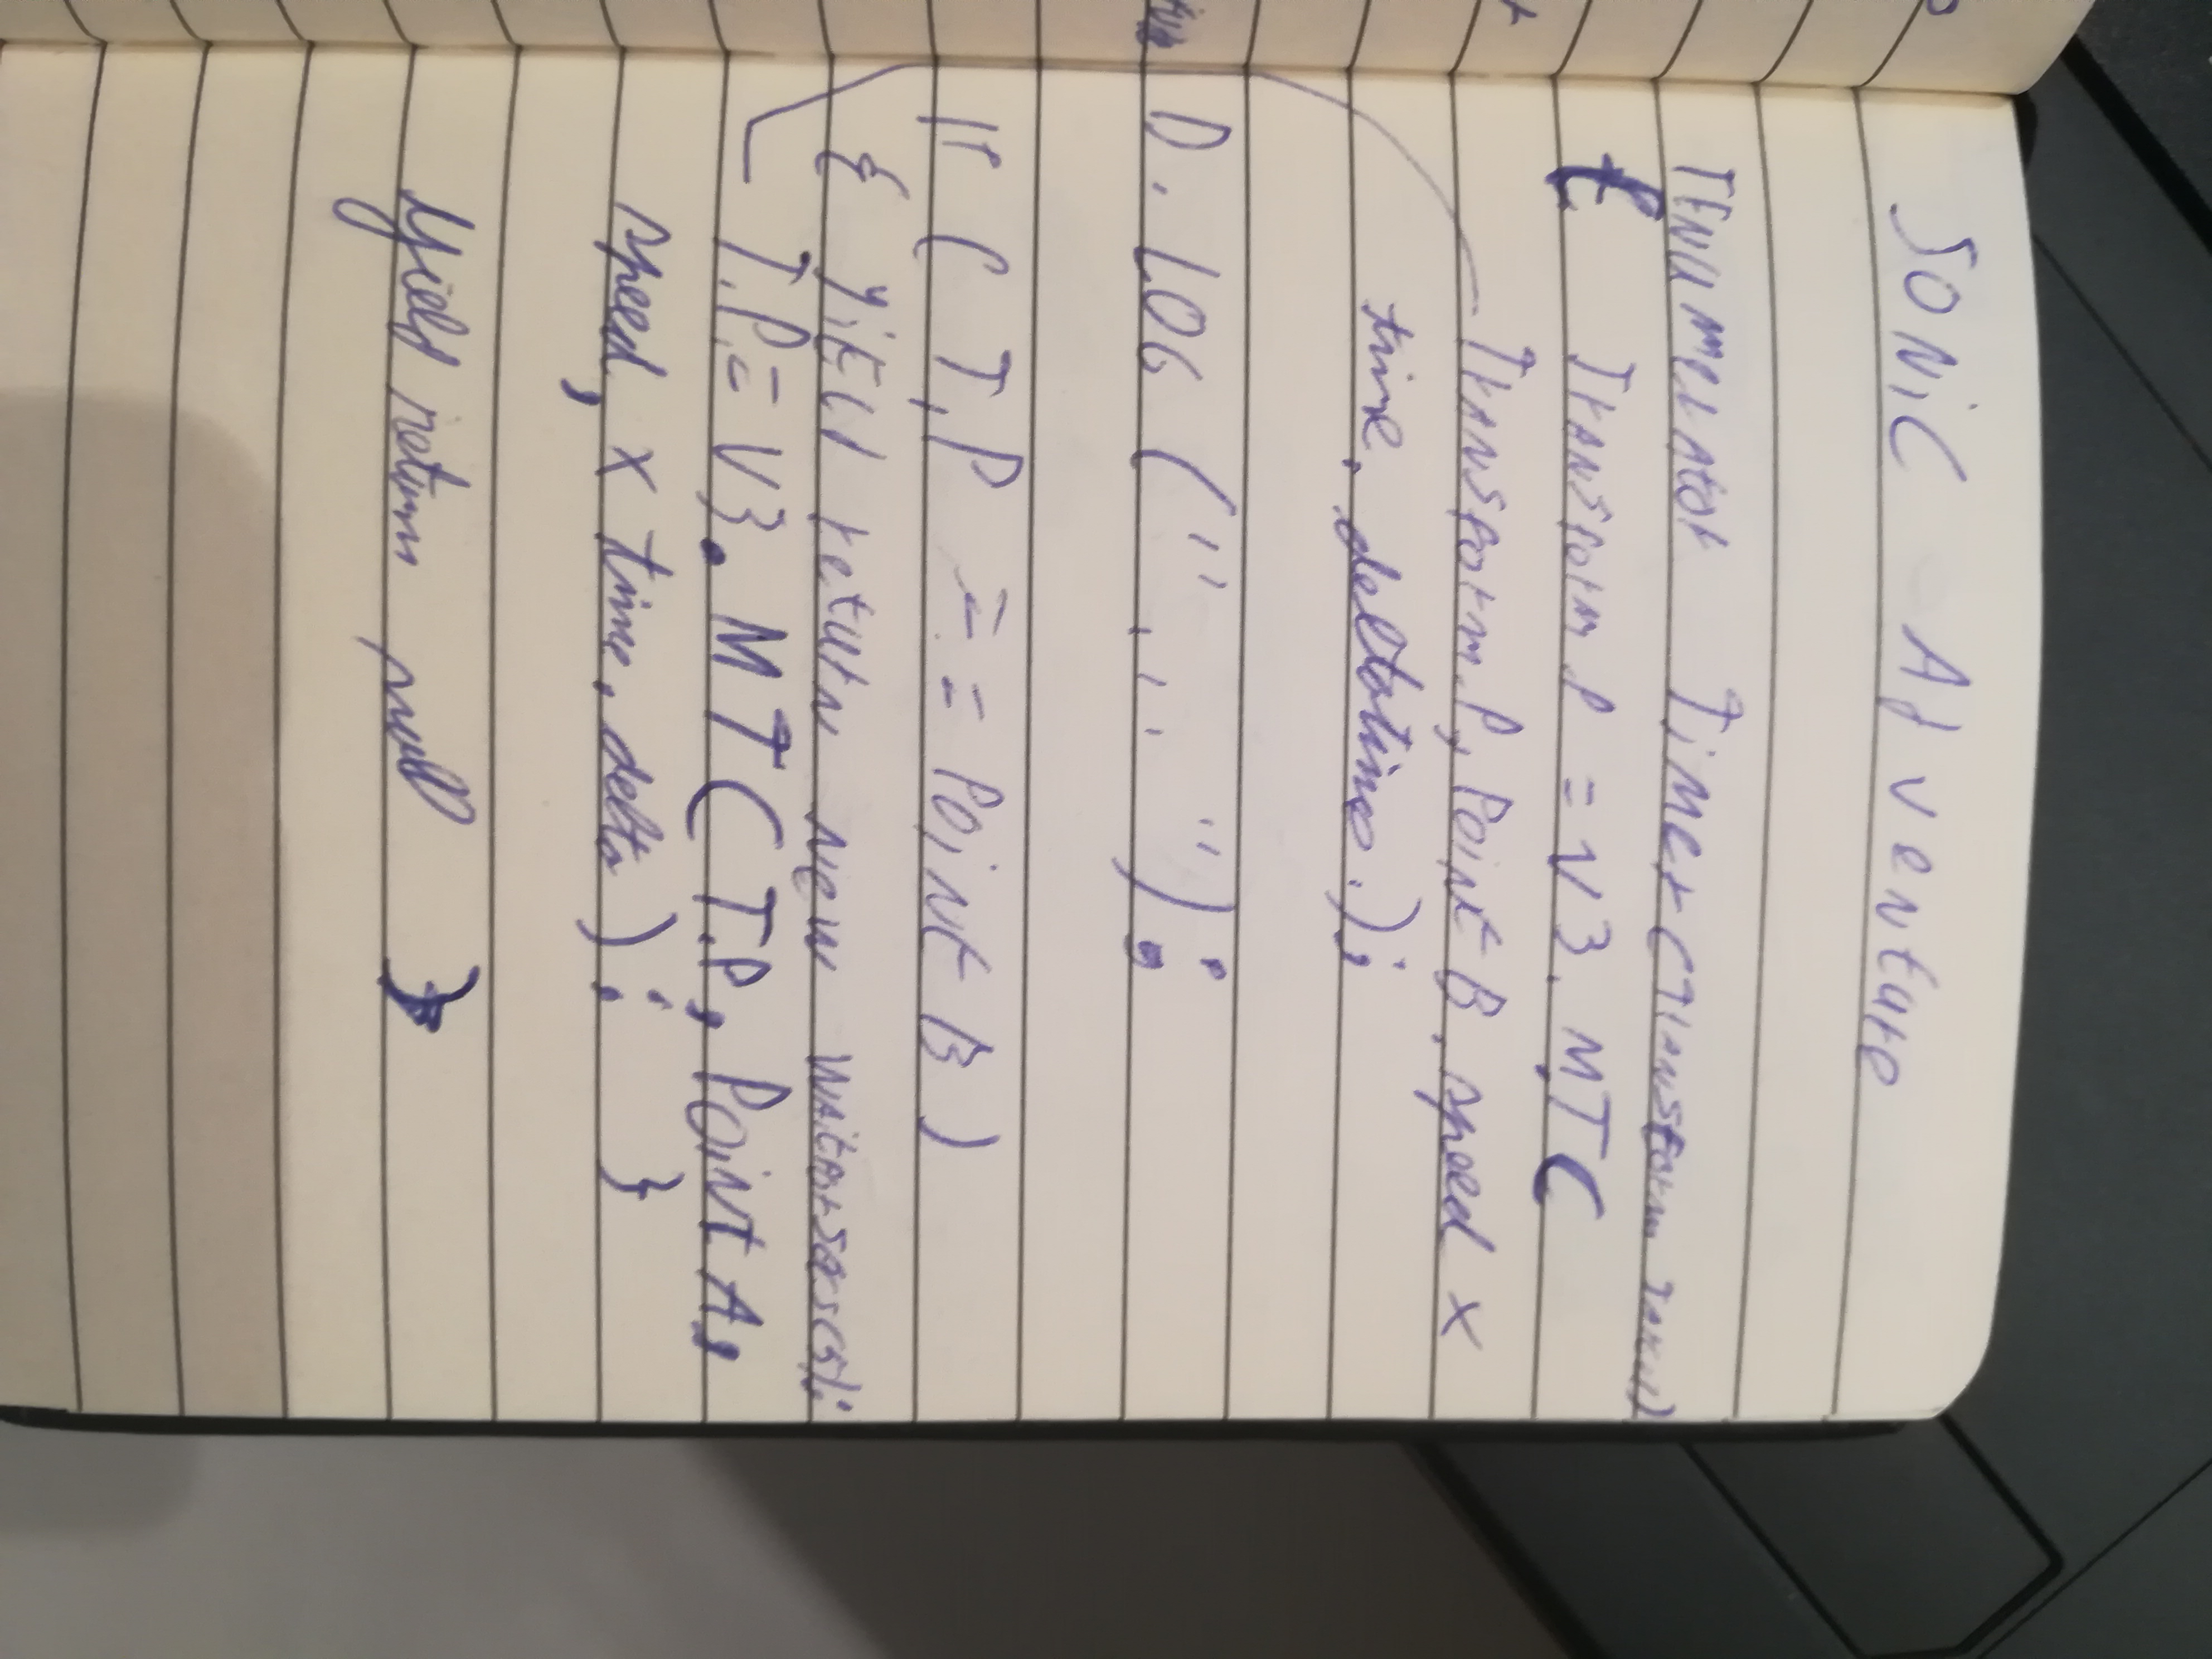 SONIC Adventure
IENUMERATOR Timer (Transform
{ Transform.P = V3.MT(
Transform.P, Point B, speed x
time.deltatime.);
D.LOG (" , , , ");
IF ( T.P == Point B )
{ yiELd return new WAitForSeks(5);
T.P. = V3.MT(T.P, Point A,
speed, x time.delta); }
Yield return null }